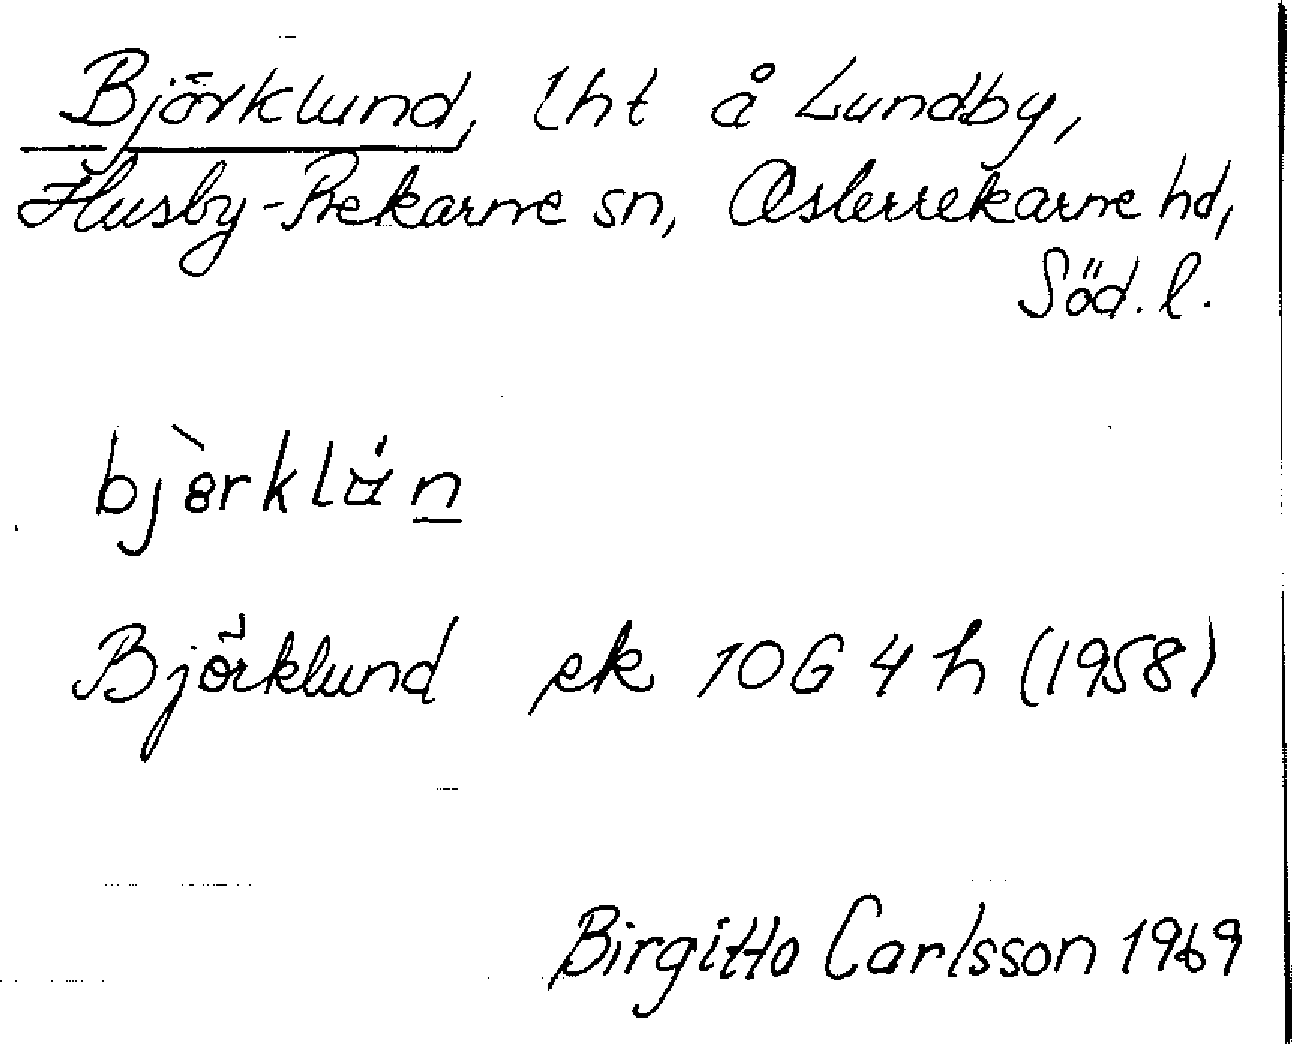 Björklund, lht å Lundby,
Husby-Rekarne sn, Österrekarne hd,
Söd. l.
bjòrklún
Björklund ek 10G 4 h (1958)
Birgitta Carlsson 1969